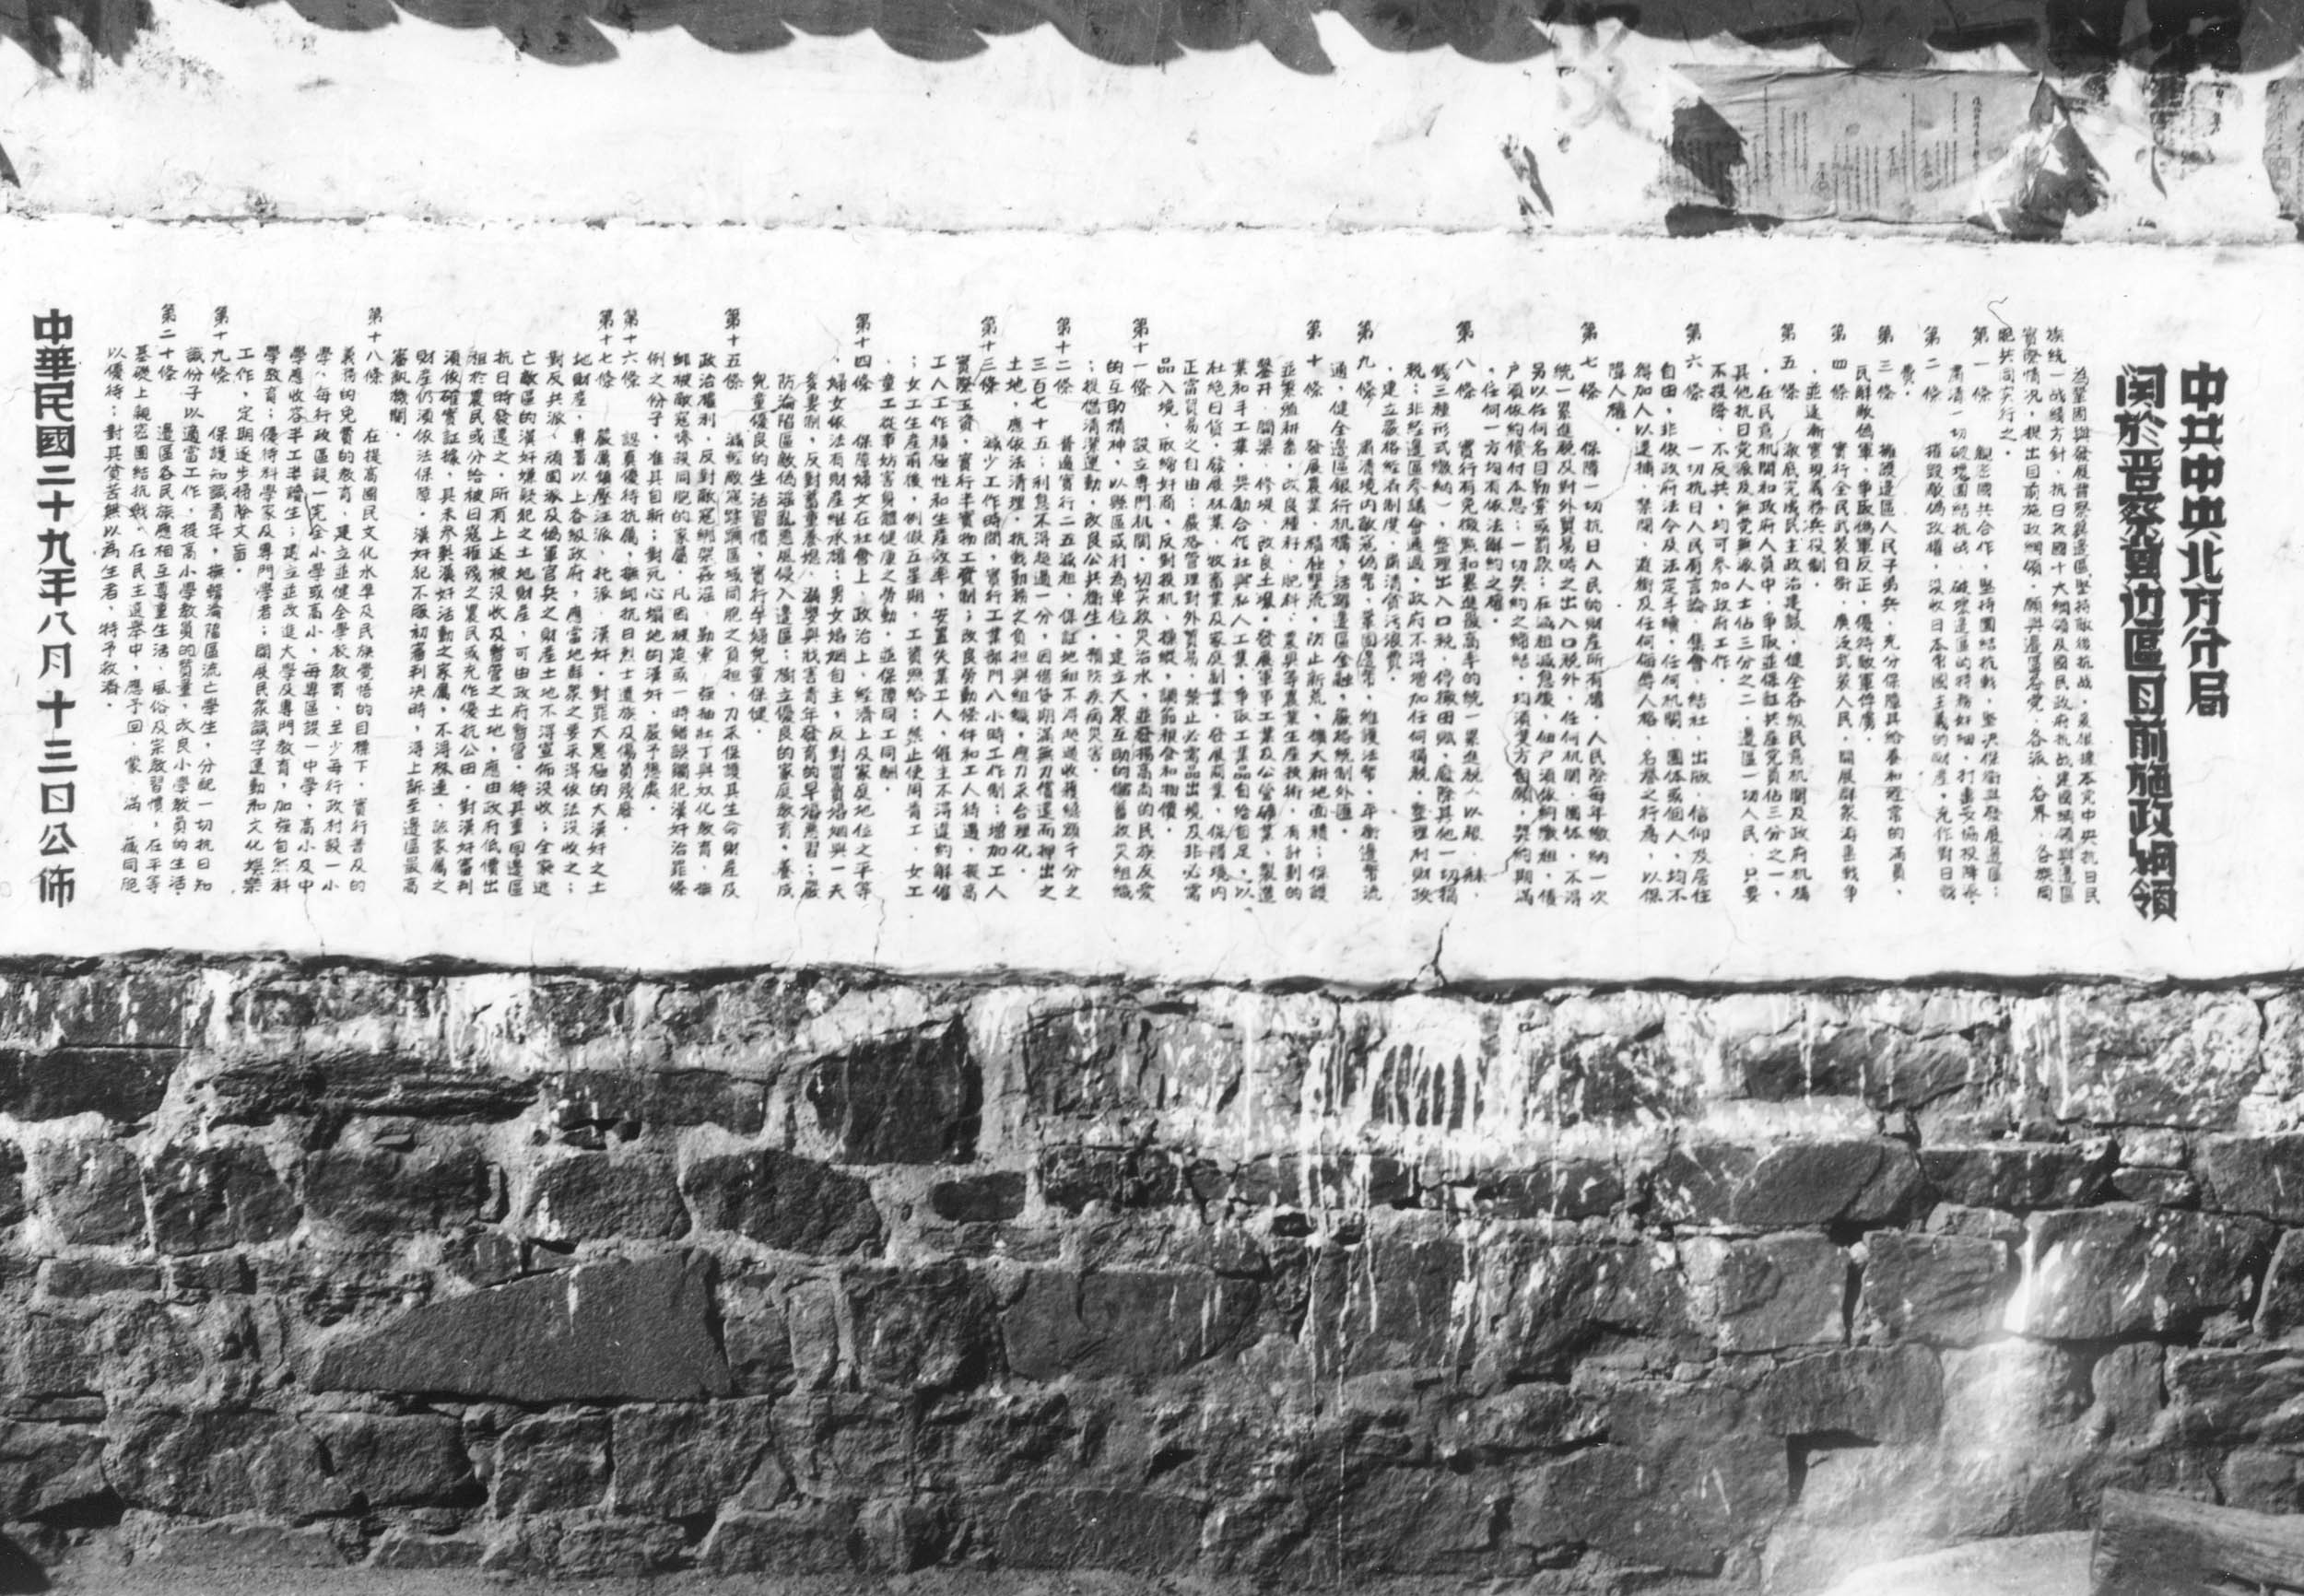 中共中央北方分局
関於晋察冀边區目前施政綱領
為鞏固與發展晋察冀邊區堅持敵後抗战，爰根據本党中央抗日民
族統一战綫方針，抗日救國十大綱領及國民政府抗战建國綱領與邊區
實際情况，提出目前施政綱領，願與邊區各党、各派、各界、各族同
胞共同实行之。
第一條　親密國共合作，堅持團結抗戰，堅决保衛與發展邊區；
肅清一切破壞團結抗战、破壞邊區的特務奸細，打擊妥協投降派。
第二條　摧毀敵偽政權，没收日本帝國主義的財產，充作對日戰
費。
第三條　擁護邊區人民子弟兵，充分保障其給養和經常的滿員，
瓦解敵偽軍，争取偽軍反正，優待敵軍俘虜。
第四條　實行全民武裝自衛，廣泛武裝人民，開展群眾游擊戰争
，並逐漸實現義務兵役制。
第五條　澈底完成民主政治建設，健全各級民意机関及政府机構
，在民意机関和政府人員中，争取並保証共產党員佔三分之一，
其他抗日党派及無党無派人士佔三分之二，邊區一切人民，只要
不投降、不反共，均可参加政府工作。
第六條　一切抗日人民有言論、集會、結社、出版、信仰及居住
自由，非依政府法令及法定手續，任何机関、團体或個人，均不
得加人以逮捕、禁閉、遊街及任何侮辱人格、名譽之行為，以保
障人權。
第七條　保障一切抗日人民的財產所有權，人民除每年繳納一次
統一累進税及對外貿易時之出入口税外，任何机関、團体，不得
另以任何名目勒索或罰款；在減租減息後，佃户須依約繳租，債
户須依約償付本息；一切契約之締結，均須双方自願，契約期滿
，任何一方均有依法解約之權。
第八條　實行有免徵点和累進最高率的統一累進税（以粮、秣、
錢三種形式繳納），整理出入口税，停徵田賦，廢除其他一切捐
税；非經邊區参議會通過，政府不得增加任何捐税，整理村財政
，建立嚴格經濟制度，肅清貪污浪費。
第九條　肅清境内敵寇偽幣，鞏固邊幣，維護法幣，平衡邊幣流
通，健全邊區銀行机構，活躍邊區金融，嚴格統制外匯。
第十條　發展農業，積極墾荒，防止新荒，擴大耕地面積；保護
並繁殖耕畜，改良種籽、肥料、農具等農業生產技術，有計劃的
鑿井、開渠、修堤、改良土壤，發展軍事工業及公營礦業、製造
業和手工業，奖勵合作社與私人工業，争取工業品自給自足，以
杜絶日貨，發展林業、牧畜業及家庭副業，發展商業，保障境内
正當貿易之自由；嚴格管理對外貿易，禁止必需品出境及非必需
品入境，取締奸商，反對投机、操縱，調節粮食和物價。
第十一條　設立專門机関，切实救災治水，並發揚高尚的民族友愛
的互助精神，以縣區或村為單位，建立大眾互助的儲蓄救災組織
；提倡清潔運動，改良公共衛生，預防疾病災害。
第十二條　普遍實行二五減租，保証地租不得超過收獲總額千分之
三百七十五；利息不得超過一分，因借貸期滿無力償還而押出之
土地，應依法清理，抗戰勤務之負担與組織，應力求合理化。
第十三條　減少工作時間，實行工業部門八小時工作制；增加工人
實際工資，實行半實物工資制；改良勞動條件和工人待遇，提高
工人工作積極性和生產效率，安置失業工人，僱主不得違約解僱
；女工生產前後，例假五星期，工資照給；禁止使用青工、女工
、童工從事妨害身體健康之勞動，並保障同工同酬。
第十四條　保障婦女在社會上、政治上、經濟上及家庭地位之平等
，婦女依法有財產继承權；男女婚姻自主，反對買賣婚姻與一夫
多妻制，反對蓄童養媳、溺嬰與戕害青年發育的早婚惡習；嚴
防淪陷區敵偽淫亂惡風侵入邊區；樹立優良的家庭教育，養成
兒童優良的生活習慣，實行孕婦兒童保健。
第十五條　減輕敵寇蹂躪區域同胞之負担，力求保護其生命財產及
政治權利，反對敵寇綁架姦淫、勒索、強抽壮丁與奴化教育，撫
卹被敵寇慘殺同胞的家屬，凡因被迫或一時錯誤觸犯漢奸治罪條
例之份子，准其自新；對死心塌地的漢奸，嚴予懲處。
第十六條　認真優待抗屬，撫卹抗日烈士遺族及傷員殘廢。
第十七條　嚴厲鎮壓汪派、托派、漢奸，對罪大惡極的大漢奸之土
地財產，專署以上各級政府，應當地群眾之要求得依法没收之；
對反共派、頑固派及偽軍官兵之財產土地不得宣佈没收；全家逃
亡敵區的漢奸嫌疑犯之土地財產，可由政府暫管，待其重回邊區
抗日時發還之，所有上述被没收及暫管之土地，應由政府低價出
租於農民或分給被日寇摧殘之農民或充作優抗公田，對漢奸審判
須依確實証據，其未参與漢奸活動之家屬，不得株連，該家屬之
財產仍須依法保障，漢奸犯不服初審判决時，得上訴至邊區最高
審訊機関。
第十八條　在提高國民文化水準及民族覺悟的目標下，實行普及的
義務的免費的教育，建立並健全學校教育，至少每行政村設一小
學，每行政區設一完全小學或高小，每專區設一中學，高小及中
學應收容半工半讀生；建立並改進大學及專門教育，加強自然科
學教育；優待科學家及專門學者；開展民眾識字運動和文化娱樂
工作，定期逐步掃除文盲。
第十九條　保護知識青年，撫輯淪陷區流亡學生，分配一切抗日知
識份子以適當工作，提高小學教員的質量，改良小學教員的生活。
第二十條　邊區各民族應相互尊重生活、風俗及宗教習慣，在平等
基礎上親密團結抗戰，在民主選舉中，應予回、蒙、滿、藏同胞
以優待；對其貧苦無以為生者，特予救濟。
中華民國二十九年八月十三日公佈